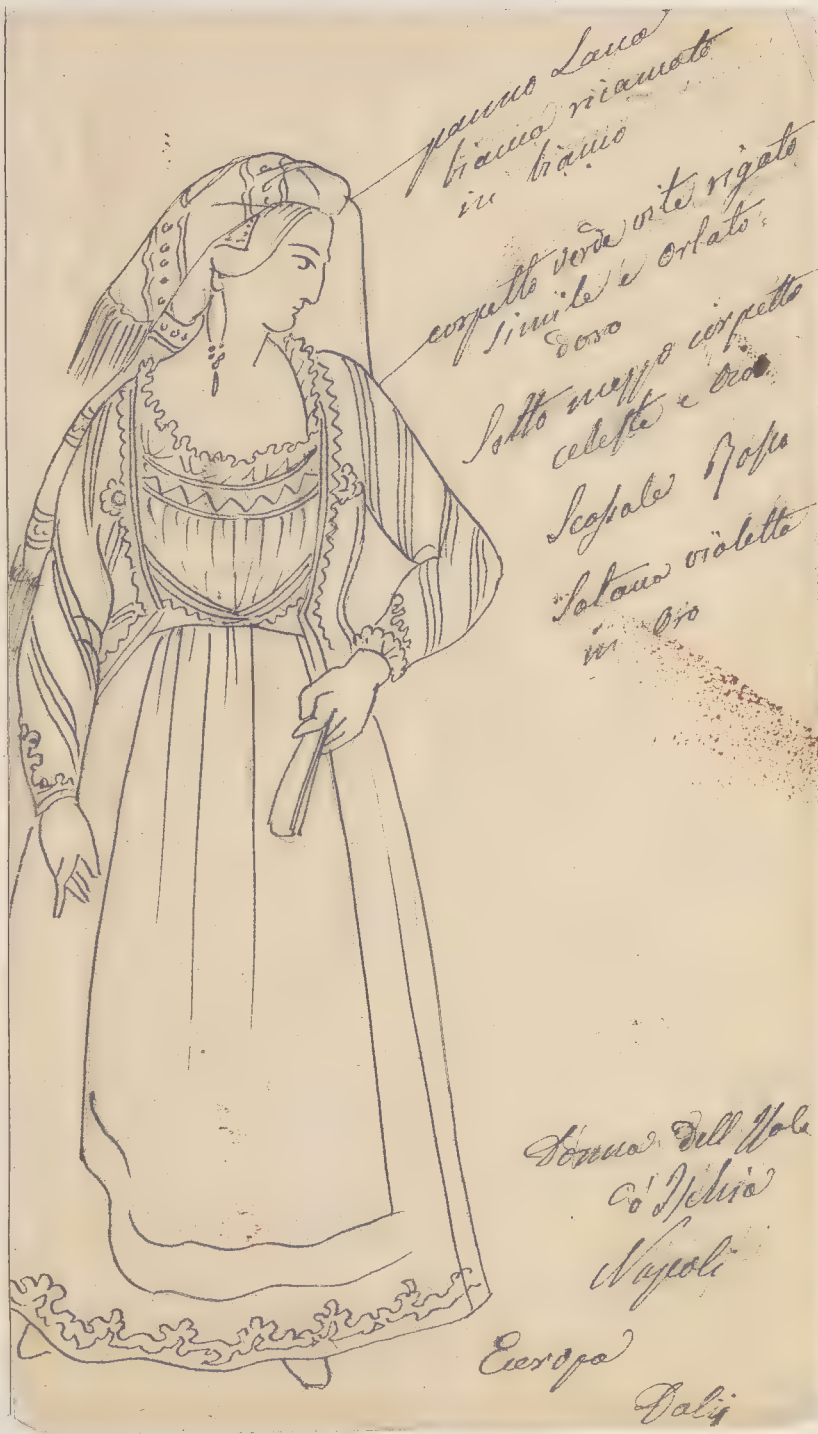 panno Lana
bianca ricamato
in bianco
corpetto verde vite rigato
simile e orlato
doro
Sotto mezzo corpetto
celeste e oro
Scossale Rosso
Sotana violetta
in oro
Donna dell Isola
d'Ischia
Napoli
Europa